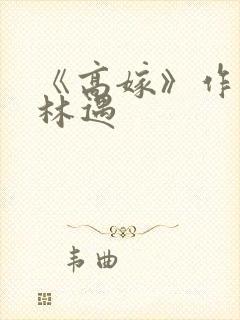 《高嫁》作
林遇
韦曲